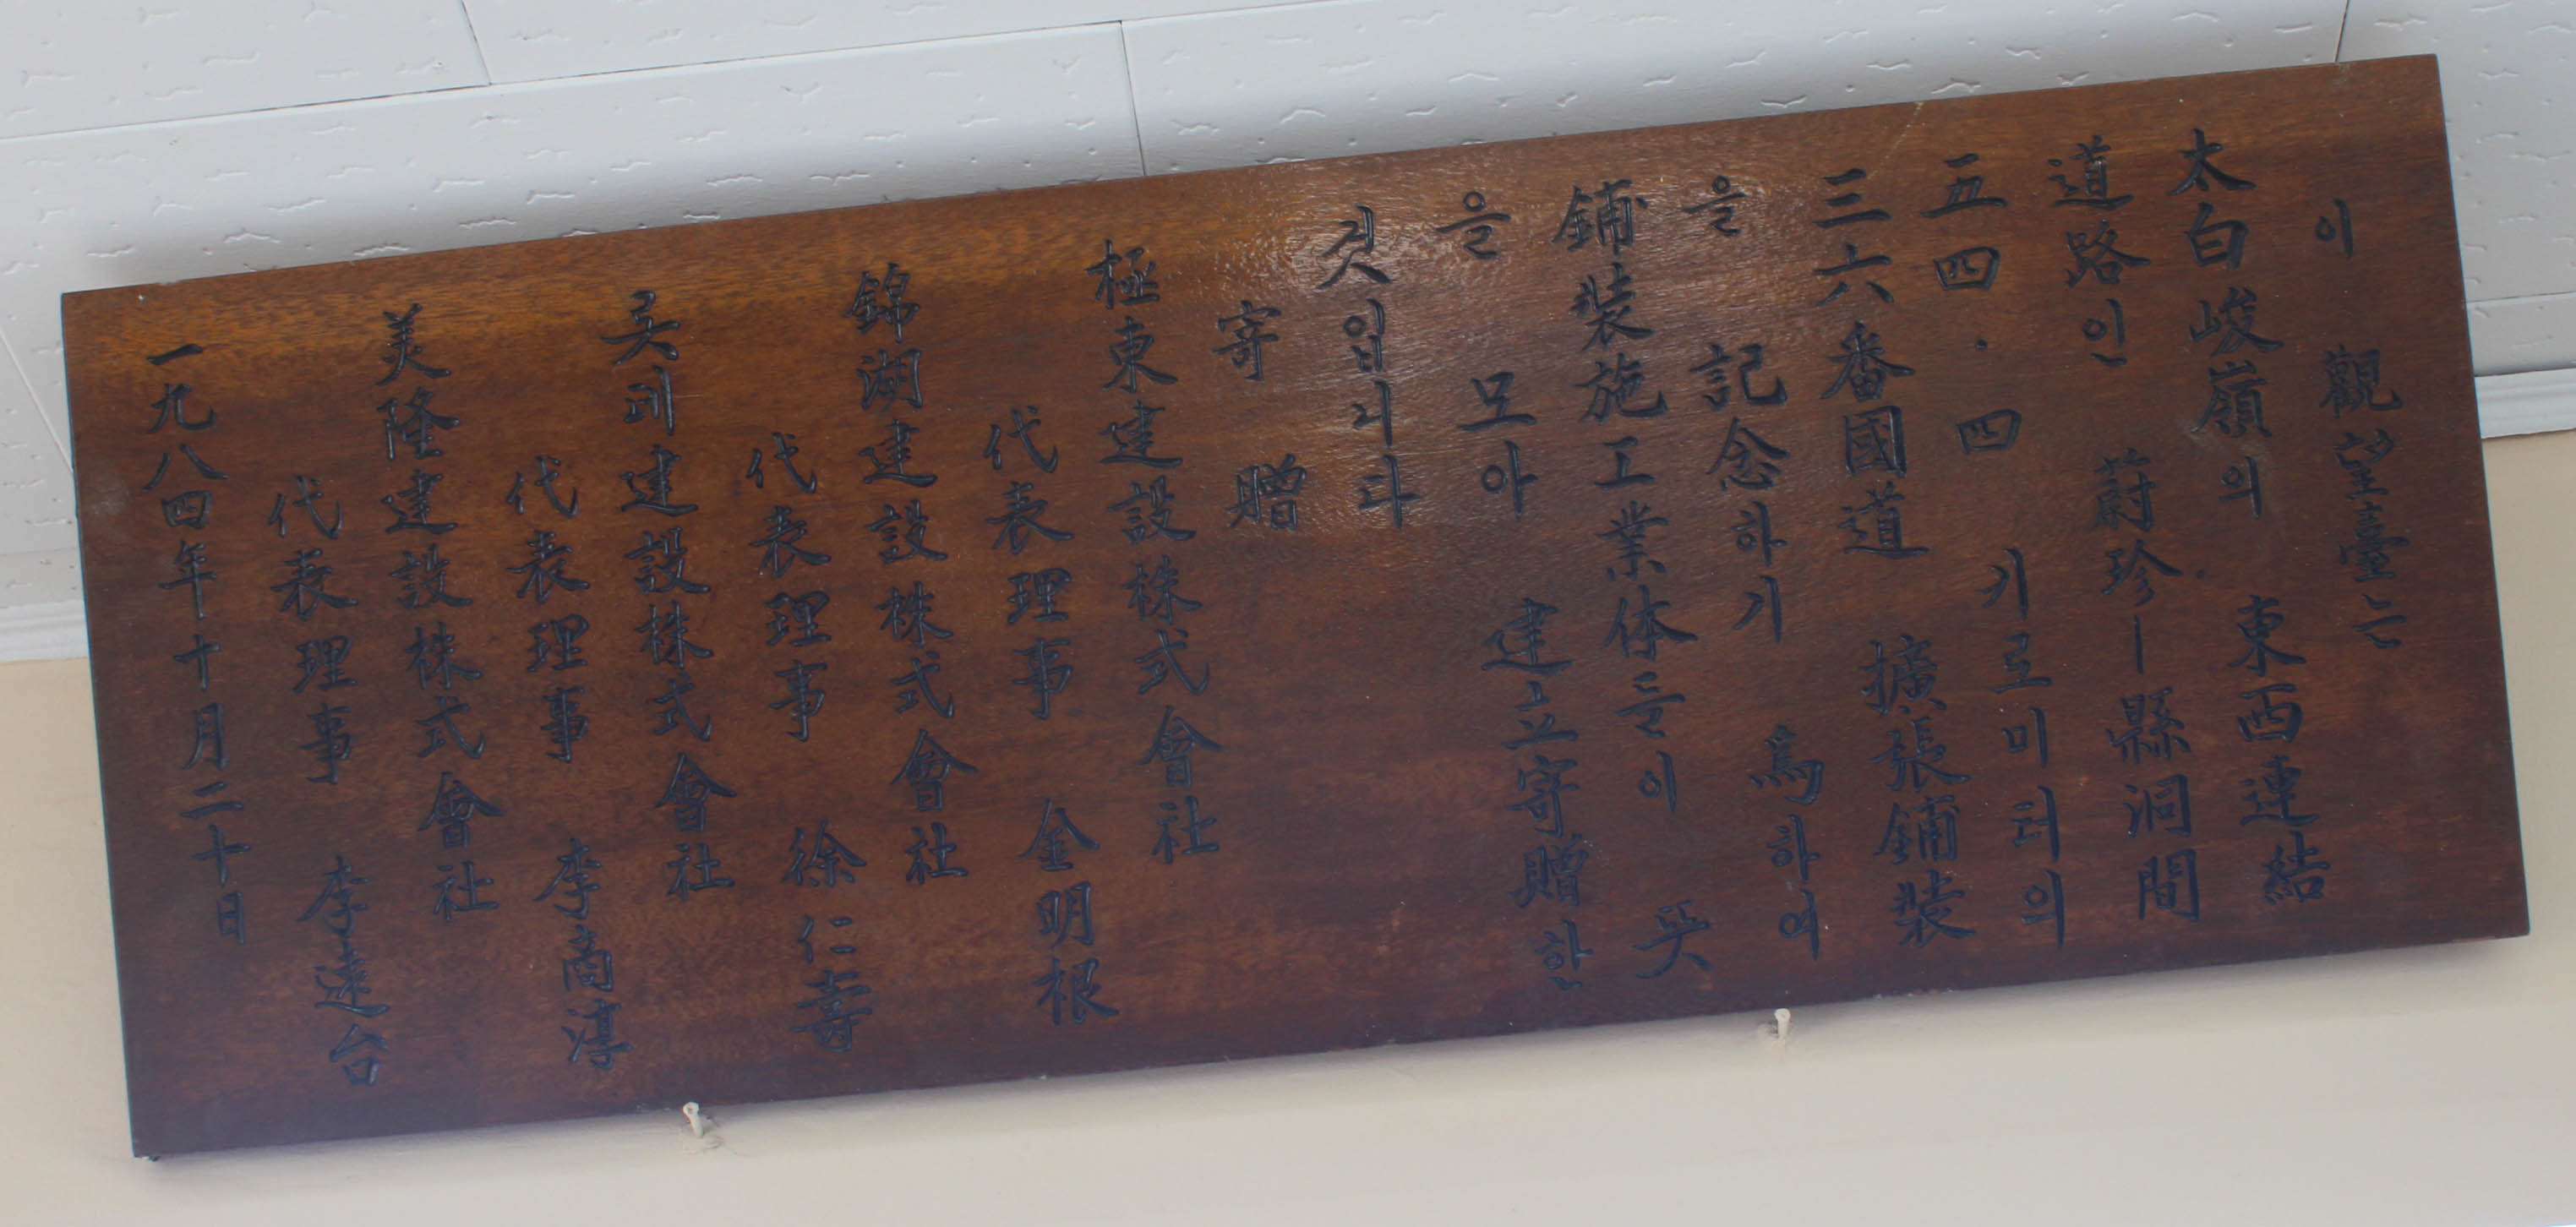 이 觀望臺는
太白峻嶺의 東西連結
道路인 蔚珍－縣洞間
五四·四 키로미터의
三六番國道 擴張鋪裝
을 記念하기 爲하여
鋪裝施工業体들이 뜻
을 모아 建立寄贈한
것입니다
寄贈
極東建設株式會社
代表理事 金明根
錦湖建設株式會社
代表理事 徐仁壽
롯데建設株式會社
代表理事 李商淳
美隆建設株式會社
代表理事 李達台
一九八四年十月二十日